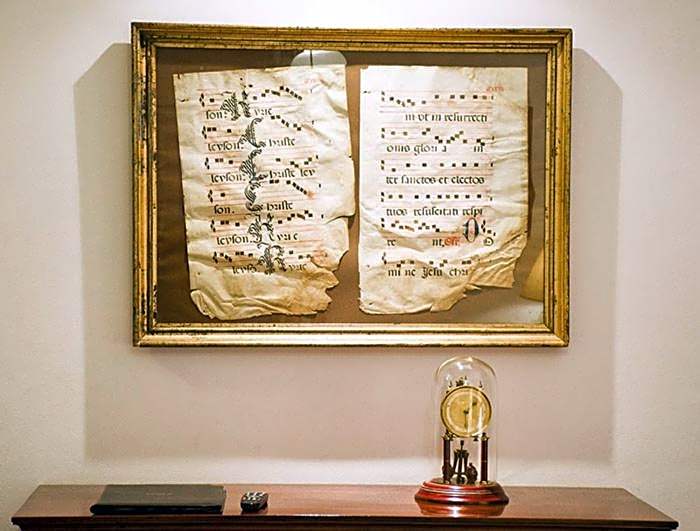 son: Kyrie
leyson: Christe
leyson: Christe ley
son: Christe
leyson: Kyrie
leyso: Kyrie
in ut in resurrecti
onis glori a in
ter sanctos et electos
tuos resuscitati respi
re nt. Off. Do
mi ne Jesu chri